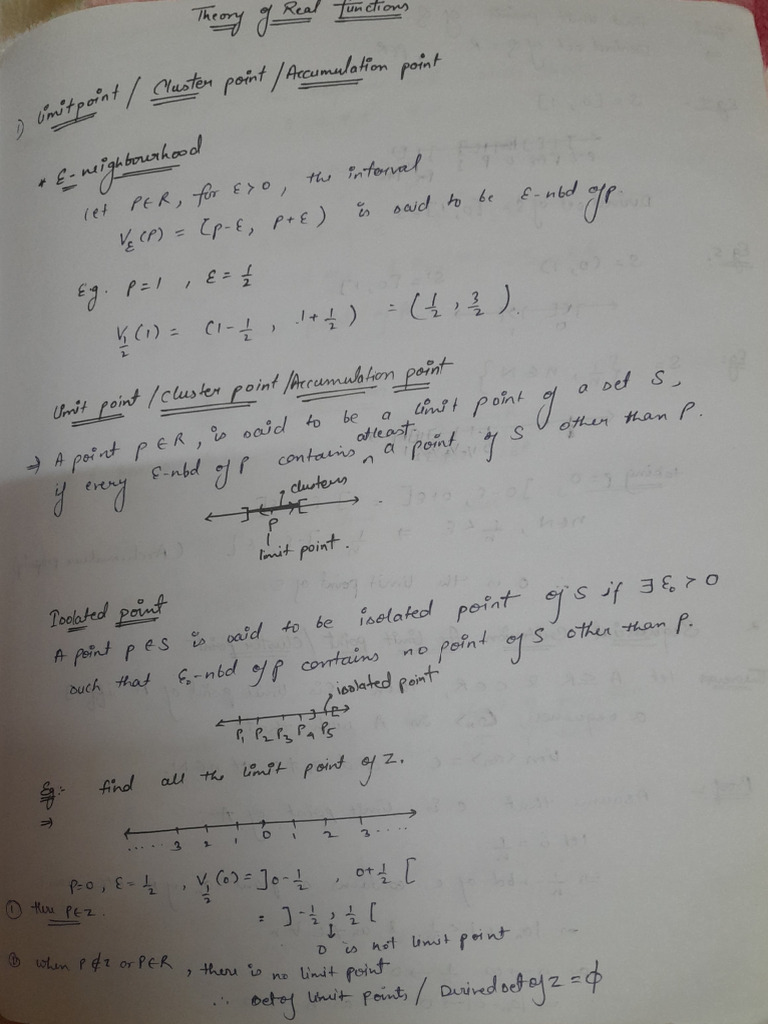 Theory of Real Functions
1) Limit point / Cluster point / Accumulation point
* ε-neighbourhood
let P∈R, for ε>0, the interval
V_ε(P) = (P-ε, P+ε) is said to be ε-nbd of p
Eg. P=1, ε=1/2
V_1/2(1) = (1-1/2, 1+1/2) = (1/2, 3/2).
Limit point / Cluster point / Accumulation point
⇒ A point P∈R, is said to be a limit point of a set S,
if every ε-nbd of P contains atleast a point of S other than P.
clusters
P
limit point.
Isolated point
A point P∈S is said to be isolated point of S if ∃ ε₀>0
such that ε₀-nbd of p contains no point of S other than p.
isolated point
P₁ P₂ P₃ P₄ P₅
Eg:- find all the limit point of Z.
⇒
..... 3 2 1 0 1 2 3 .....
P=0, ε=1/2, V_1/2(0) = ]0-1/2, 0+1/2[
① there P∈Z. = ]-1/2, 1/2[
↓
0 is not limit point
② when P∉Z or P∈R, there is no limit point
∴ set of limit points / Derived set of Z = ϕ